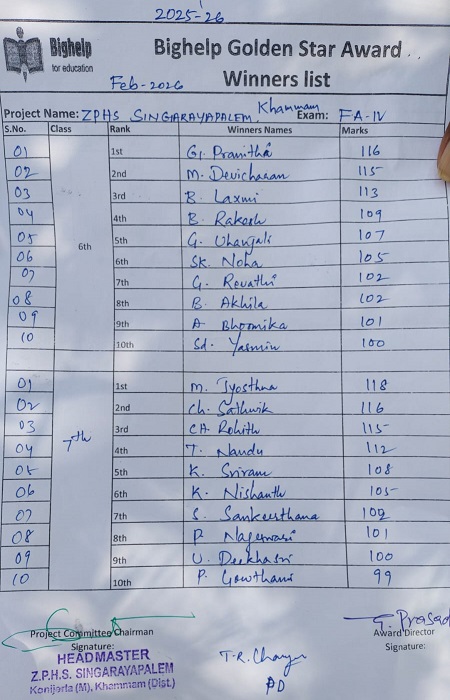 2025-26
Bighelp
for education
Bighelp Golden Star Award
Feb-2026
Winners list
Project Name: ZPHS SINGARAYAPALEM, Khammam Exam: FA-IV
S.No. Class Rank Winners Names Marks
01 1st G. Pranitha 116
02 2nd M. Devicharan 115
03 3rd B. Laxmi 113
04 4th B. Rakesh 109
05 6th 5th G. Uhanjali 107
06 6th SK. Noha 105
07 7th G. Revathi 102
08 8th B. Akhila 102
09 9th A Bhoomika 101
10 10th Sd. Yasmin 100
01 1st M. Jyosthna 118
02 2nd Ch. Sathwik 116
03 3rd CH. Rohith 115
04 7th 4th T. Nandu 112
05 5th K. Sriram 108
06 6th K. Nishanth 105
07 7th S. Sankeerthana 102
08 8th P. Nageswari 101
09 9th U. Deekhasri 100
10 10th P. Gowthami 99
T. Prasad
Project Committee Chairman
Signature:
Award Director
Signature:
HEAD MASTER
Z.P.H.S. SINGARAYAPALEM
Konijerla (M), Khammam (Dist.)
T.R.
PD